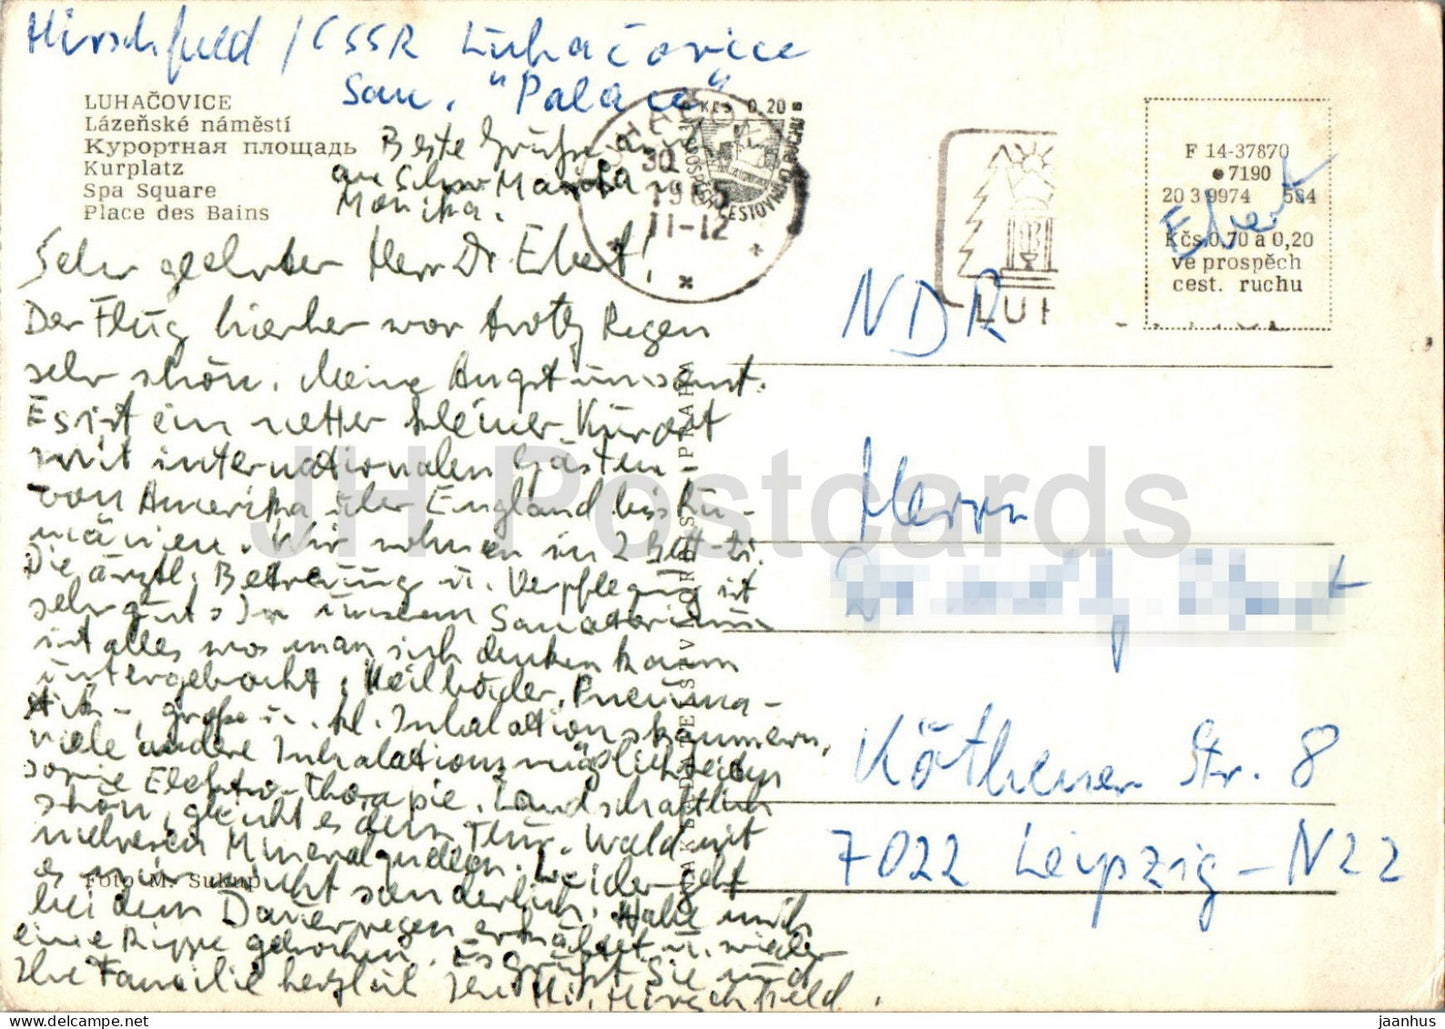 Hirschfeld / ČSSR Luhačovice
San. "Palace"
LUHAČOVICE
Lázeňské náměstí
Курортная площадь
Kurplatz
Spa Square
Place des Bains
Beste Grüße auch
an
Monika.
30.
1985
11-12
Kčs 0,20
LUH
F 14-37870
7190
20 3 9974 584
Kčs 0,70 a 0,20
ve prospěch
cest. ruchu
Ebert
NDR
Herrn
Köthener Str. 8
7022 Leipzig-N22
Sehr geehrter Herr Dr. Ebert!
Der Flug hierher war trotz Regen
sehr schön. Meine Angst umsonst.
Es ist ein netter kleiner Kurort
mit internationalen Gästen -
von Amerika über England bis Ru-
mänien. Wir wohnen in 2 Bett-Zi.
Die ärztl. Betreuung u. Verpflegung ist
sehr gut. In unserem Sanatorium
ist alles was man sich denken kann
untergebracht, Heilbäder, Pneuma-
tik-, große u. kl. Inhalationskammern,
viele andere Inhalationsmöglichkeiten
sowie Elektro-Therapie. Landschaftlich
schön, gleicht es dem Thür. Wald mit
mehreren Mineralquellen. Leider geht
es mir nicht sonderlich. Habe mich
bei dem Dauerregen erkältet u. wieder
eine Rippe gebrochen. Es grüßt Sie und
Ihre Familie herzlich Ihre Hi. Hirschfeld.
Foto M. Sukup
JH Postcards
jaanhus